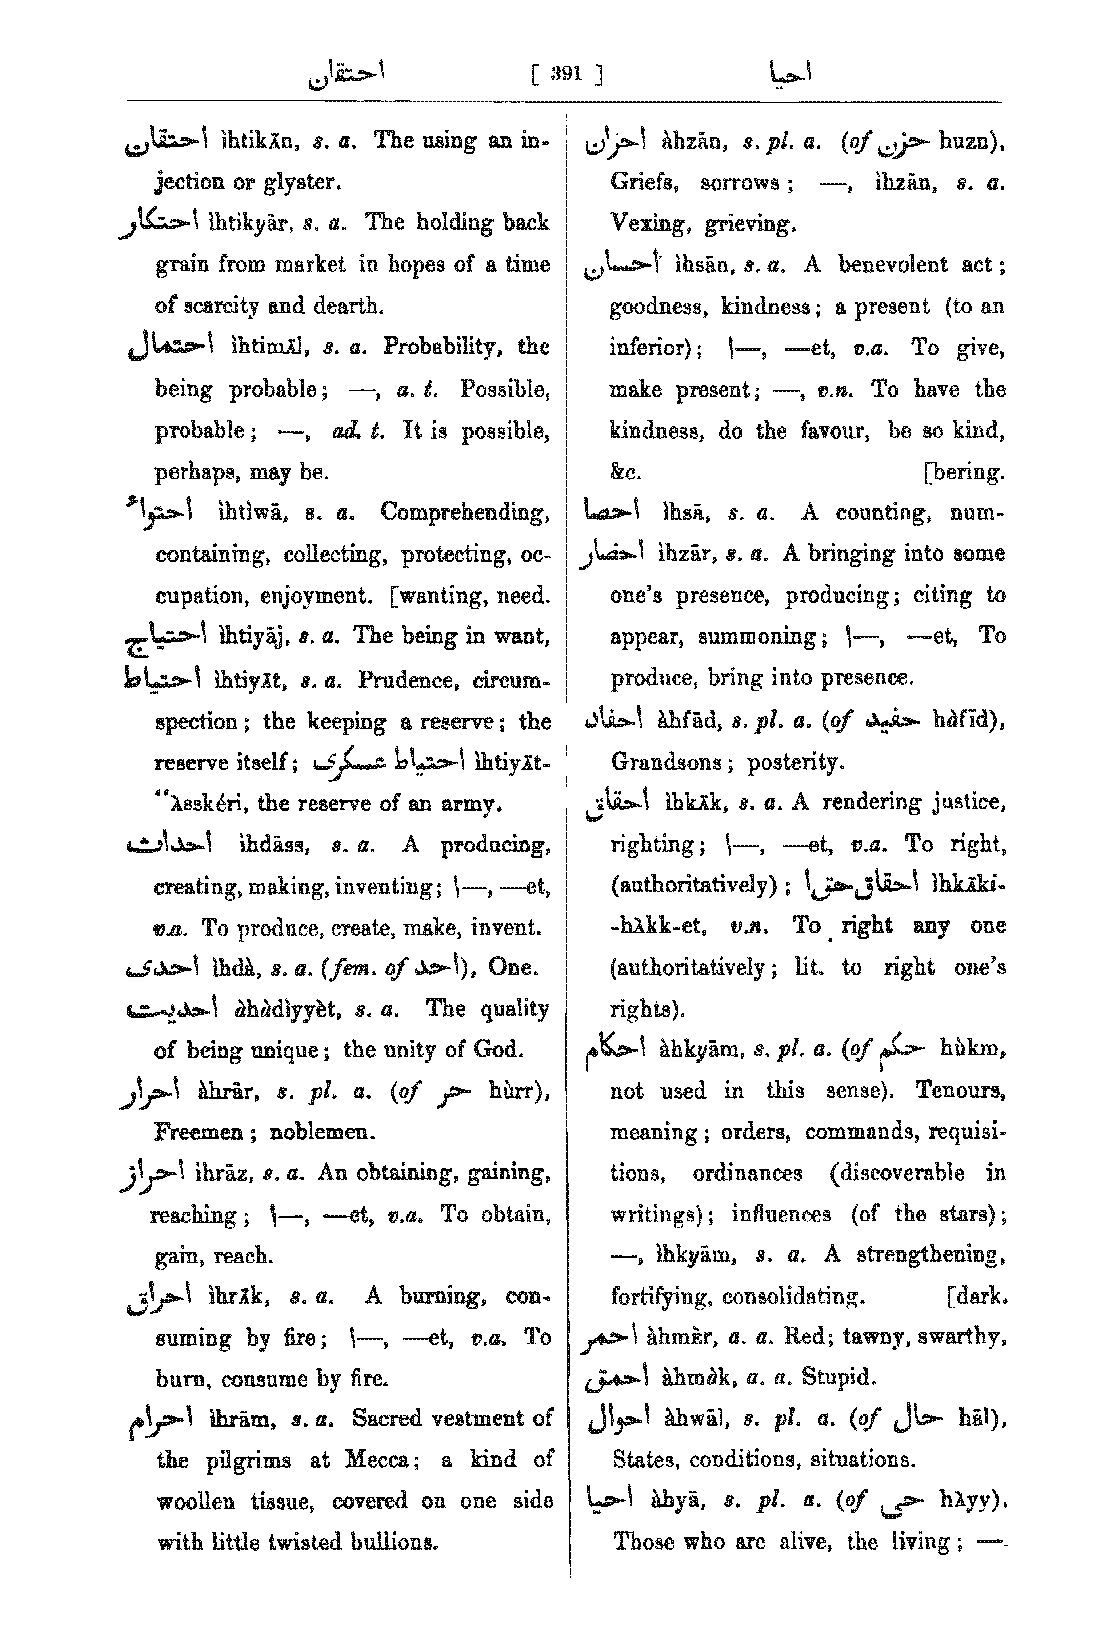 احتقان [ 391 ] احيا
احتقان ìhtikᴀ̄n, s. a. The using an in-
jection or glyster.
احتكار ìhtikyār, s. a. The holding back
grain from market in hopes of a time
of scarcity and dearth.
احتمال ìhtimᴀ̄l, s. a. Probability, the
being probable; —, a. t. Possible,
probable; —, ad. t. It is possible,
perhaps, may be.
احتواء ìhtìwā, s. a. Comprehending,
containing, collecting, protecting, oc-
cupation, enjoyment. [wanting, need.
احتياج ìhtiyāj, s. a. The being in want,
احتياط ìhtiyᴀ̄t, s. a. Prudence, circum-
spection; the keeping a reserve; the
reserve itself; احتياط عسكرى ìhtiyᴀ̄t-
“ᴀ̀sskéri, the reserve of an army.
احداث ìhdāss, s. a. A producing,
creating, making, inventing; \—, —et,
v.a. To produce, create, make, invent.
احدى ìhdà, s. a. (fem. of احد), One.
احديت àhàdìyyèt, s. a. The quality
of being unique; the unity of God.
احرار àhrār, s. pl. a. (of حر hùrr),
Freemen; noblemen.
احراز ìhrāz, s. a. An obtaining, gaining,
reaching; \—, —et, v.a. To obtain,
gain, reach.
احراق ìhrᴀ̄k, s. a. A burning, con-
suming by fire; \—, —et, v.a. To
burn, consume by fire.
احرام ìhrām, s. a. Sacred vestment of
the pilgrims at Mecca; a kind of
woollen tissue, covered on one side
with little twisted bullions.
احزان àhzān, s. pl. a. (of حزن huzn),
Griefs, sorrows; —, ìhzān, s. a.
Vexing, grieving.
احسان ìhsān, s. a. A benevolent act;
goodness, kindness; a present (to an
inferior); \—, —et, v.a. To give,
make present; —, v.n. To have the
kindness, do the favour, be so kind,
&c. [bering.
احصا ìhsᴀ̄, s. a. A counting, num-
احضار ìhzār, s. a. A bringing into some
one’s presence, producing; citing to
appear, summoning; \—, —et, To
produce, bring into presence.
احفاد àhfād, s. pl. a. (of حفيد hàfīd),
Grandsons; posterity.
احقاق ìhkᴀ̄k, s. a. A rendering justice,
righting; \—, —et, v.a. To right,
(authoritatively); احقاق حق\ ìhkᴀ̄ki-
-hᴀ̀kk-et, v.n. To right any one
(authoritatively; lit. to right one’s
rights).
احكام àhkyām, s. pl. a. (of حكم hùkm,
not used in this sense). Tenours,
meaning; orders, commands, requisi-
tions, ordinances (discoverable in
writings); influences (of the stars);
—, ìhkyām, s. a. A strengthening,
fortifying, consolidating. [dark.
احمر àhmèr, a. a. Red; tawny, swarthy,
احمق àhmàk, a. a. Stupid.
احوال àhwāl, s. pl. a. (of حال hāl),
States, conditions, situations.
احيا àhyā, s. pl. a. (of حي hᴀ̀yy),
Those who are alive, the living; —